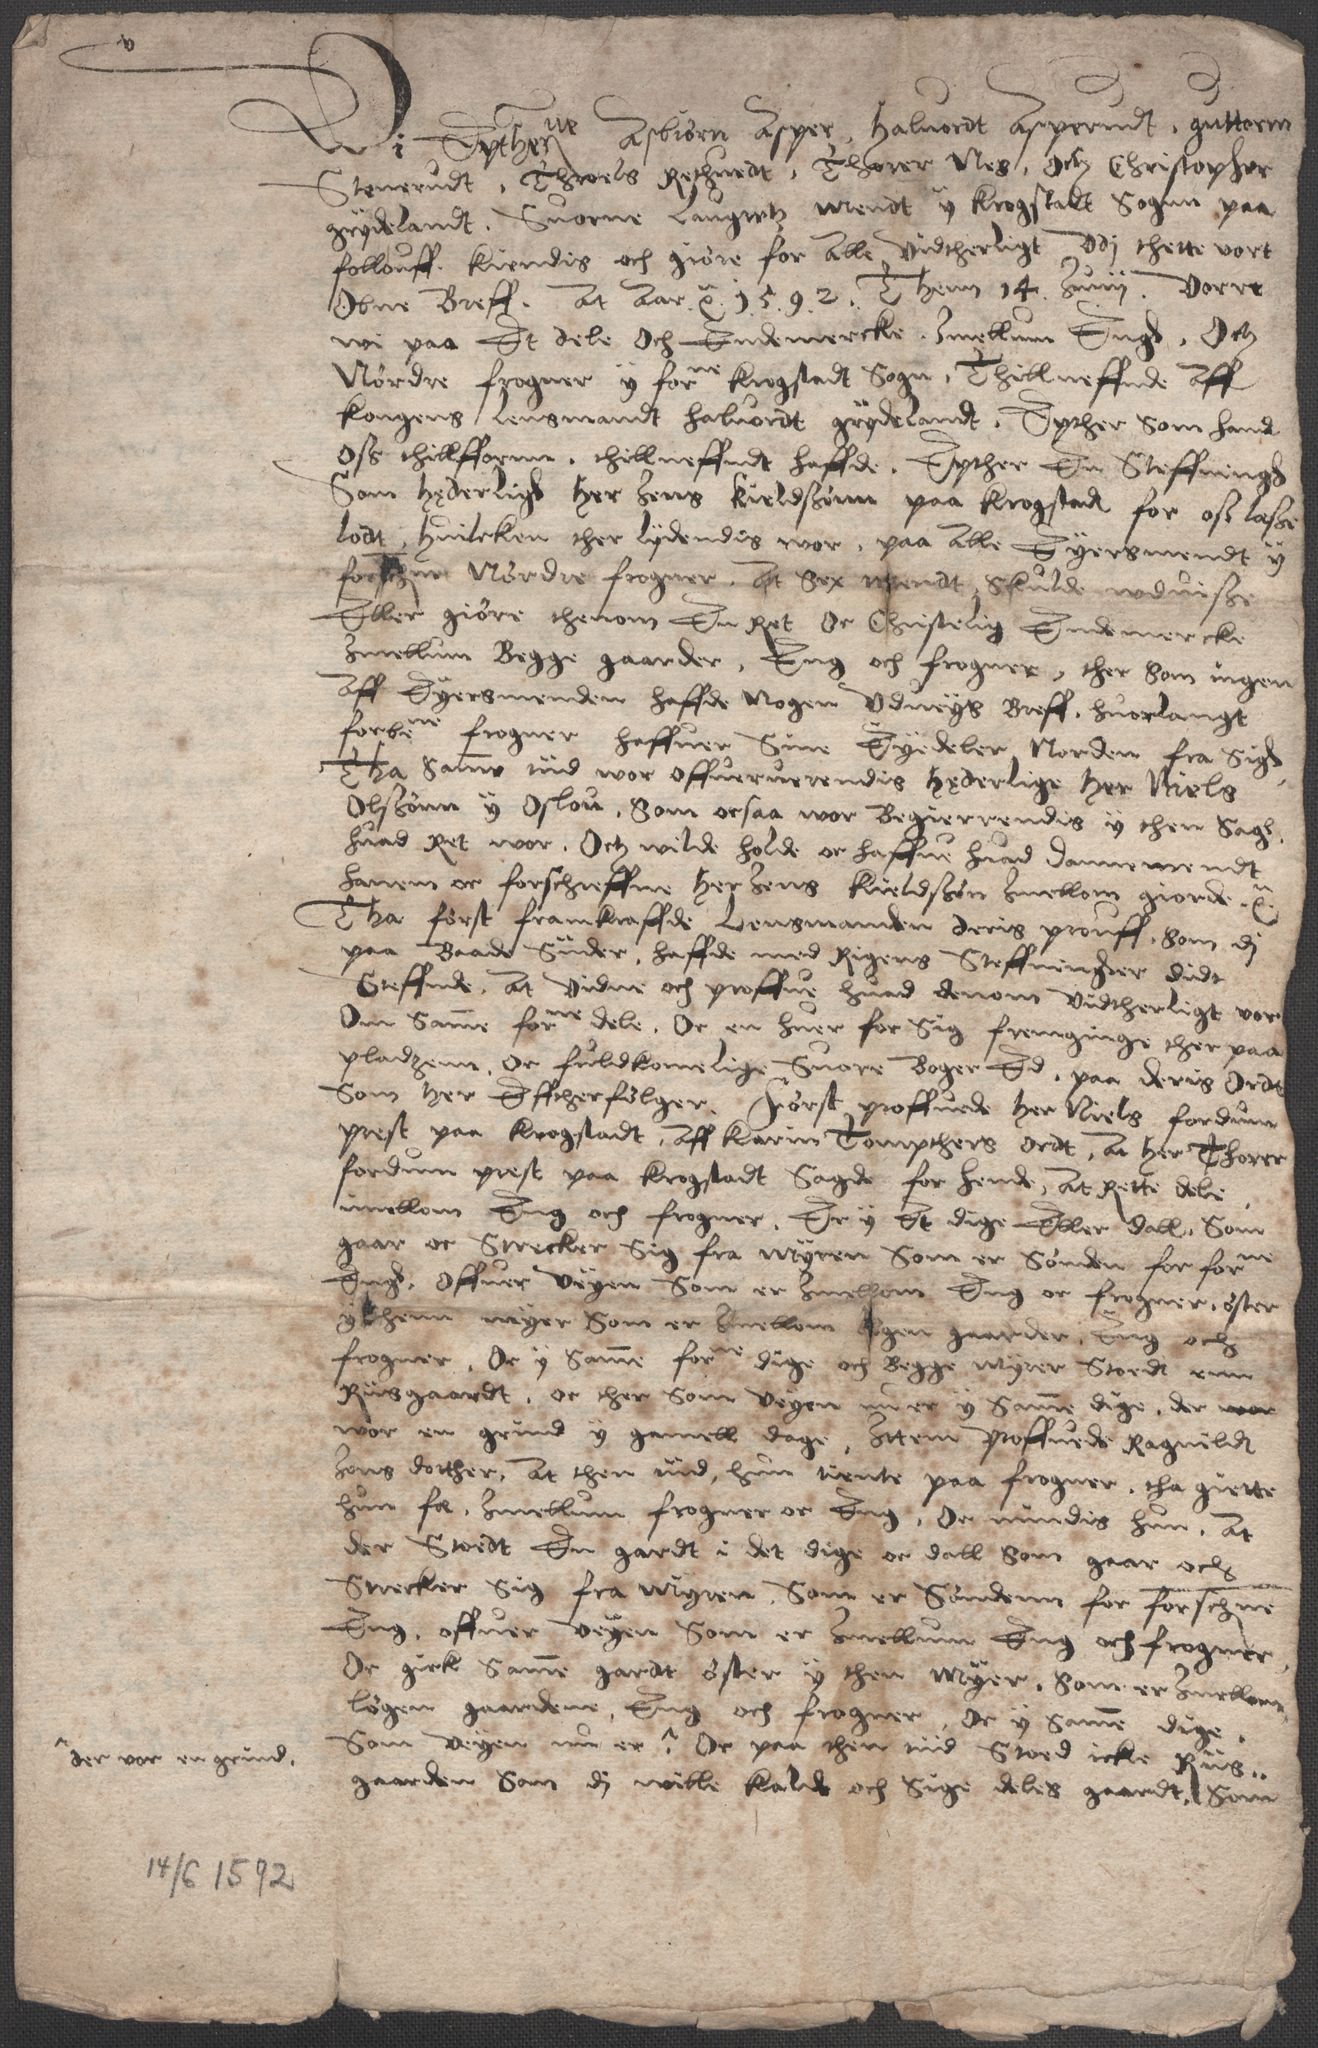 Wi Epther^ne Asbiörn Asper, Haluordt Asperudt, guttorm
Stenerudt, Throels Rethuedt, Thorer Nes, Och Christopher
grydelandt. Suorne Laugretz mendt y Krogstadt Sognn paa
follouff. Kiendis och giöre for Alle Vidtherligt Vdj thette vort
Obne Breff. At Aar &. 1592. Thenn 14. Junij. Vorre
wi paa Et dele Och Endemercke. Jmellum Engh, Och
Nördre frogner y for^ne Krogstadt Sogn, Thillneffnde Aff
Kongens Lensmandt haluordt grydelandt. Epther Som hand
oss thillffornn, thillneffndt haffde. Epther En Steffningh
Som hederligh her Jens Kieldssönn paa Krogstadt for oss læsse
lodt, huilcken ther lydendis wor, paa Alle Eyersmendt y
forschne Nördre frogner. At Sex mendt, Skulde wduisse
Eller giöre thenom En Ret Oc Christelig Endemercke
Jmellum Begge gaarder, Eng och frogner, ther Som ingen
Aff Eyersmenden haffde Nogen Vdueys Breff. huorlangt
forbe^ne frogner haffuer Sine Eyedeler Norden fra Sigh,
Tha Samme tiid wor offueruerendis hederlige her Niels
Olssönn y Oslou, Som ocsaa wor Begierrendis y then Sagh,
huad Ret wor. Och wilde holde oc haffue huad dannemendt
hanem oc forschreffne her Jens Kieldssön Jmellom giorde. &.
Tha först framkraffde Lensmanden deris prouff. Som dj
paa Baade Siider, haffde med Rigens Steffninger didt
Steffnde. At Vidne och proffue huad denom Vidtherligt vor
Om Samme for^ne dele. Oc en huer for Sig fremginge ther paa
pladzenn, oc fuldkomelige Suore Boger Ed, paa deris Ordt
Som her Effterfölger. Först proffuede her Niels fordum
prest paa Krogstadt, Aff Karin Tompthers ordt, At her Thorer
fordum prest paa Krogstadt Sagde for hende, At Rette dele
imellom Eng och frogner, Er y Et dige Eller dall, Som
gaar oc Strecker Sig fra Myren Som er Sönden for for^ne
Engh, offuer Veyen Som er Jmellom Eng oc frogner, öster
y thenn myer Som er Jmellom lögen gaarder, Eng och
frogner, Oc y Samme for^ne dige och Begge Myrer Stoedt enn
Riisgaardt, oc ther Som Veyen nu er y Samme dige, der wor
wor en grind y gamell dage, Jttem Proffuede Ragnildt
Jens dotther, At then tiid, hun tiente paa frogner, tha giette
hun fæ, Jmellum frogner oc Eng, Oc mindis hun, At
der Stoedt En gardt i det dige oc dall Som gaar och
Strecker Sig fra Myren, Som er Söndenn for forschne
Eng, offuer Veyen Som er Jmellum Eng och frogner,
Oc gick Samme gardt öster y then Myer, Som er Jmellom
lögen gaardene, Eng och frogner, Oc y Samme dige,
Som Veyen nu er ^ Oc paa then tiid Stoed icke Riis..
^ der vor en grind.
gaarden Som dj wille kalde och Sige deles gaardt, Som
14/6 1592